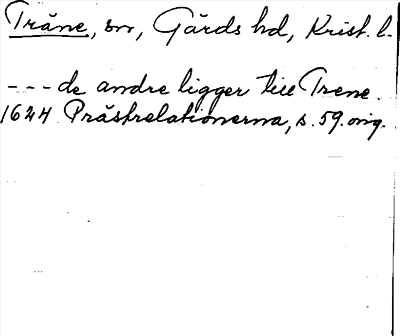 Träne, sn, Gärds hd, Krist. l.
--- de andre ligger till Trene.
1624 Prästrelationerna, s. 59. orig.